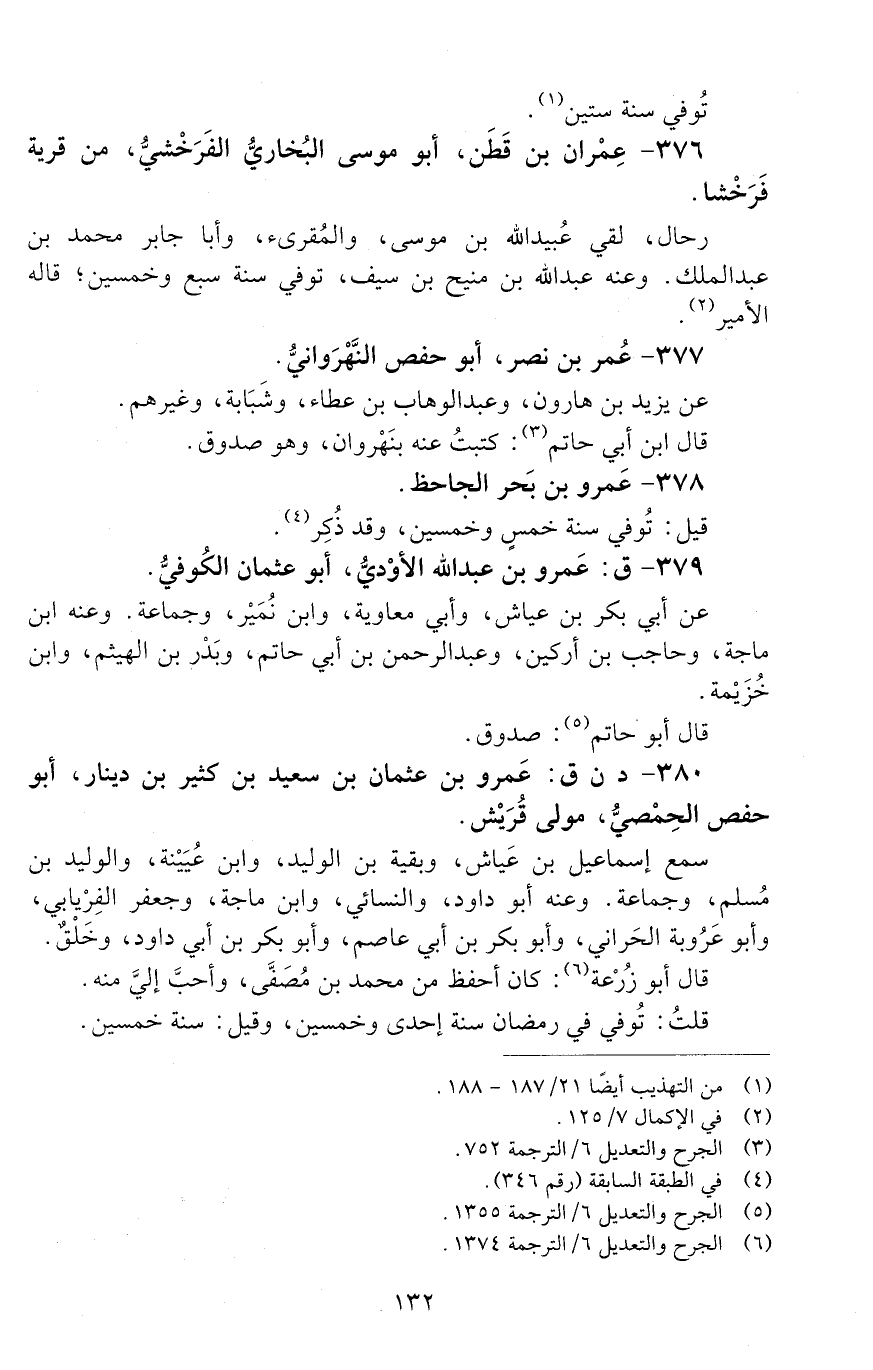 تُوفي سنة ستين(١).
٣٧٦- عِمْران بن قَطَن، أبو موسى البُخاريُّ الفَرَخْشيُّ، من قرية
فَرَخْشا.
رحال، لقي عُبيدالله بن موسى، والمُقرىء، وأبا جابر محمد بن
عبدالملك. وعنه عبدالله بن منيح بن سيف، توفي سنة سبع وخمسين؛ قاله
الأمير(٢).
٣٧٧- عُمر بن نصر، أبو حفص النَّهْرَوانيُّ.
عن يزيد بن هارون، وعبدالوهاب بن عطاء، وشَبَابة، وغيرهم.
قال ابن أبي حاتم(٣): كتبتُ عنه بنَهْروان، وهو صدوق.
٣٧٨- عَمرو بن بَحر الجاحظ.
قيل: تُوفي سنة خمسٍ وخمسين، وقد ذُكِر(٤).
٣٧٩- ق: عَمرو بن عبدالله الأوْديُّ، أبو عثمان الكُوفيُّ.
عن أبي بكر بن عياش، وأبي معاوية، وابن نُمَيْر، وجماعة. وعنه ابن
ماجة، وحاجب بن أركين، وعبدالرحمن بن أبي حاتم، وبَدْر بن الهيثم، وابن
خُزَيْمة.
قال أبو حاتم(٥): صدوق.
٣٨٠- د ن ق: عَمرو بن عثمان بن سعيد بن كثير بن دينار، أبو
حفص الحِمْصيُّ، مولى قُرَيْش.
سمع إسماعيل بن عَياش، وبقية بن الوليد، وابن عُيَيْنة، والوليد بن
مُسلم، وجماعة. وعنه أبو داود، والنسائي، وابن ماجة، وجعفر الفِرْيابي،
وأبو عَرُوبة الحَراني، وأبو بكر بن أبي عاصم، وأبو بكر بن أبي داود، وخَلْقٌ.
قال أبو زُرْعة(٦): كان أحفظ من محمد بن مُصَفَّى، وأحبَّ إليَّ منه.
قلتُ: تُوفي في رمضان سنة إحدى وخمسين، وقيل: سنة خمسين.
(١) من التهذيب أيضًا ٢١/ ١٨٧ - ١٨٨.
(٢) في الإكمال ٧/ ١٢٥.
(٣) الجرح والتعديل ٦/ الترجمة ٧٥٢.
(٤) في الطبقة السابقة (رقم ٣٤٦).
(٥) الجرح والتعديل ٦/ الترجمة ١٣٥٥.
(٦) الجرح والتعديل ٦/ الترجمة ١٣٧٤.
١٣٢